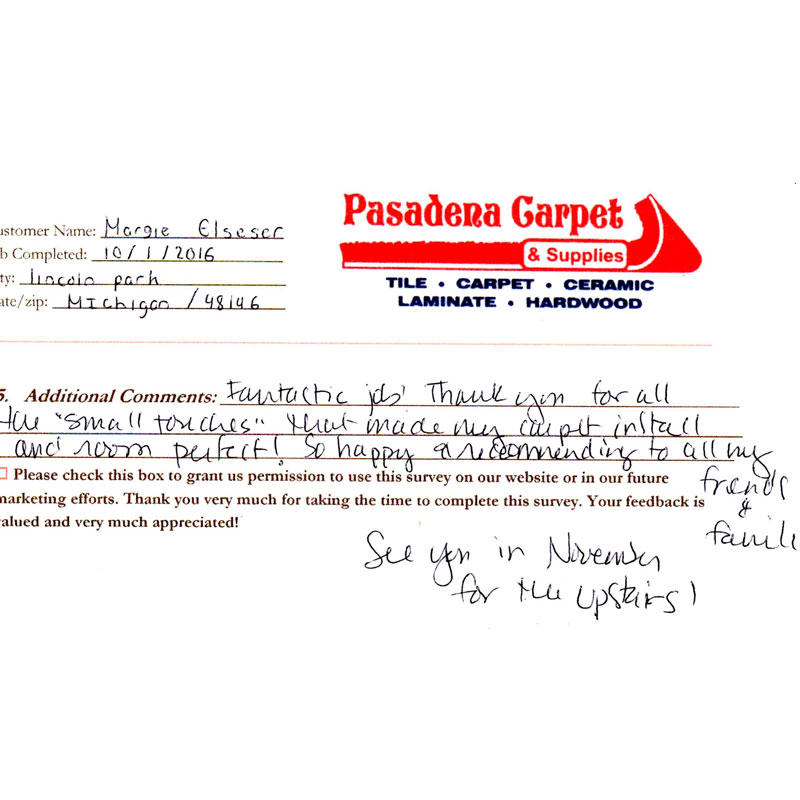 ustomer Name: Margie Elseser
b Completed: 10/1/2016
ty: lincoln park
ate/zip: Michigan / 48146
Pasadena Carpet
& Supplies
TILE • CARPET • CERAMIC
LAMINATE • HARDWOOD
5. Additional Comments: Fantastic job! Thank you for all
the "small touches" that made my carpet install
and room perfect! So happy & recommending to all my
friends
&
famili
Please check this box to grant us permission to use this survey on our website or in our future
marketing efforts. Thank you very much for taking the time to complete this survey. Your feedback is
alued and very much appreciated!
See you in November
for the upstairs!